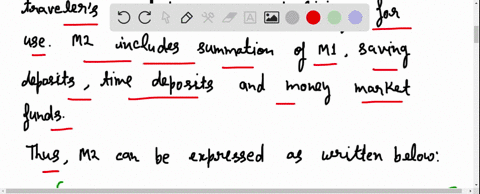 traveler's for
use. M2 includes summation of M1, saving
deposits, time deposits and money market
funds.
Thus, M2 can be expressed as written below: